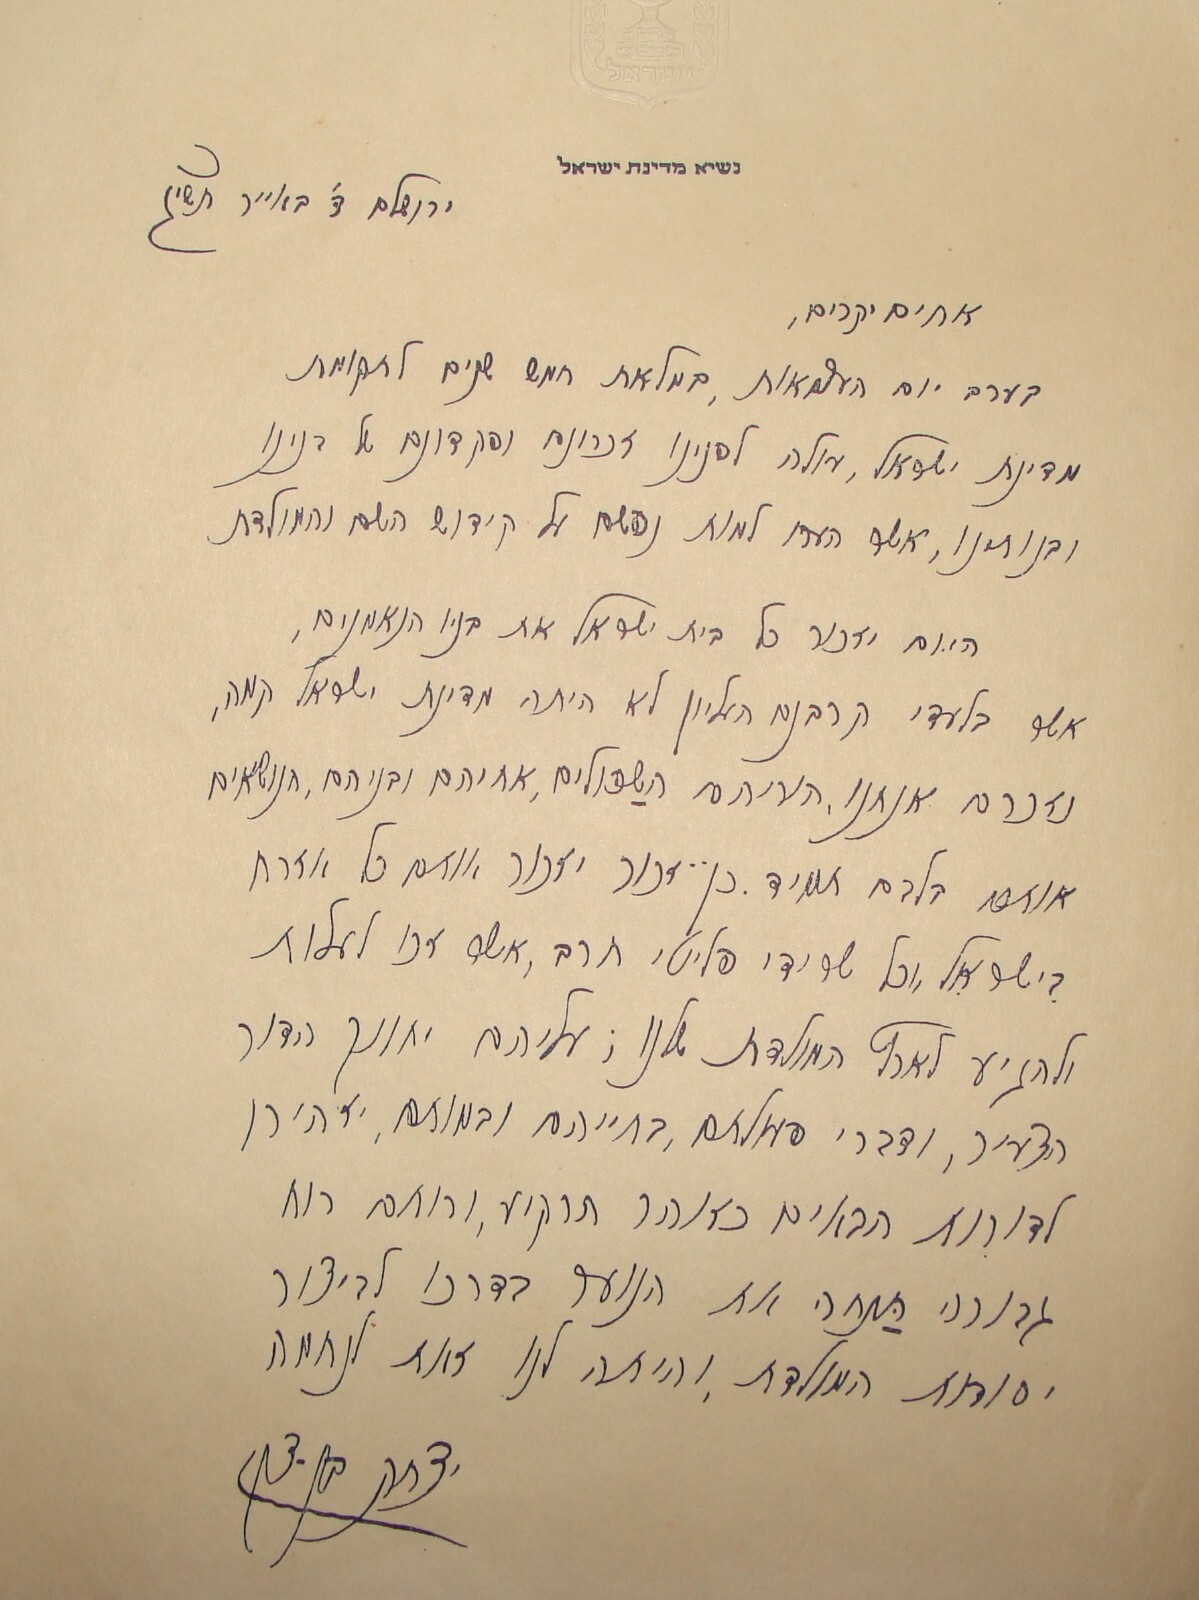 ישראל
נשיא מדינת ישראל
ירושלם ד' באייר תשי"ג
אחים יקרים,
בערב יום העצמאות, במלאת חמש שנים לתקומת
מדינת ישראל, עולה לפנינו זכרונם ופקדונם של בנינו
ובנותינו, אשר הערו למות נפשם על קידוש השם והמולדת
היום יזכור כל בית ישראל את בניו הנאמנים,
אשר בלעדי קרבנם העליון לא היתה מדינת ישראל קמה,
נזכרם אנחנו, הוריהם השכולים, אחיהם ובניהם, הנושאים
אותם בלבם תמיד. כן זכור יזכור אותם כל אזרח
בישראל, וכל שרידי פליטי חרב, אשר זכו לעלות
ולהגיע לארץ המולדת שלנו; עליהם יחונך הדור
הצעיר, ודברי פעולתם, בחייהם ובמותם, יזהירו
לדורות הבאים כזוהר הרקיע, ורוחם רוח
גבורה תנחה את הנוער בדרכו לביצור
יסודות המולדת, והיתה לנו זאת לנחמה
יצחק בן-צבי